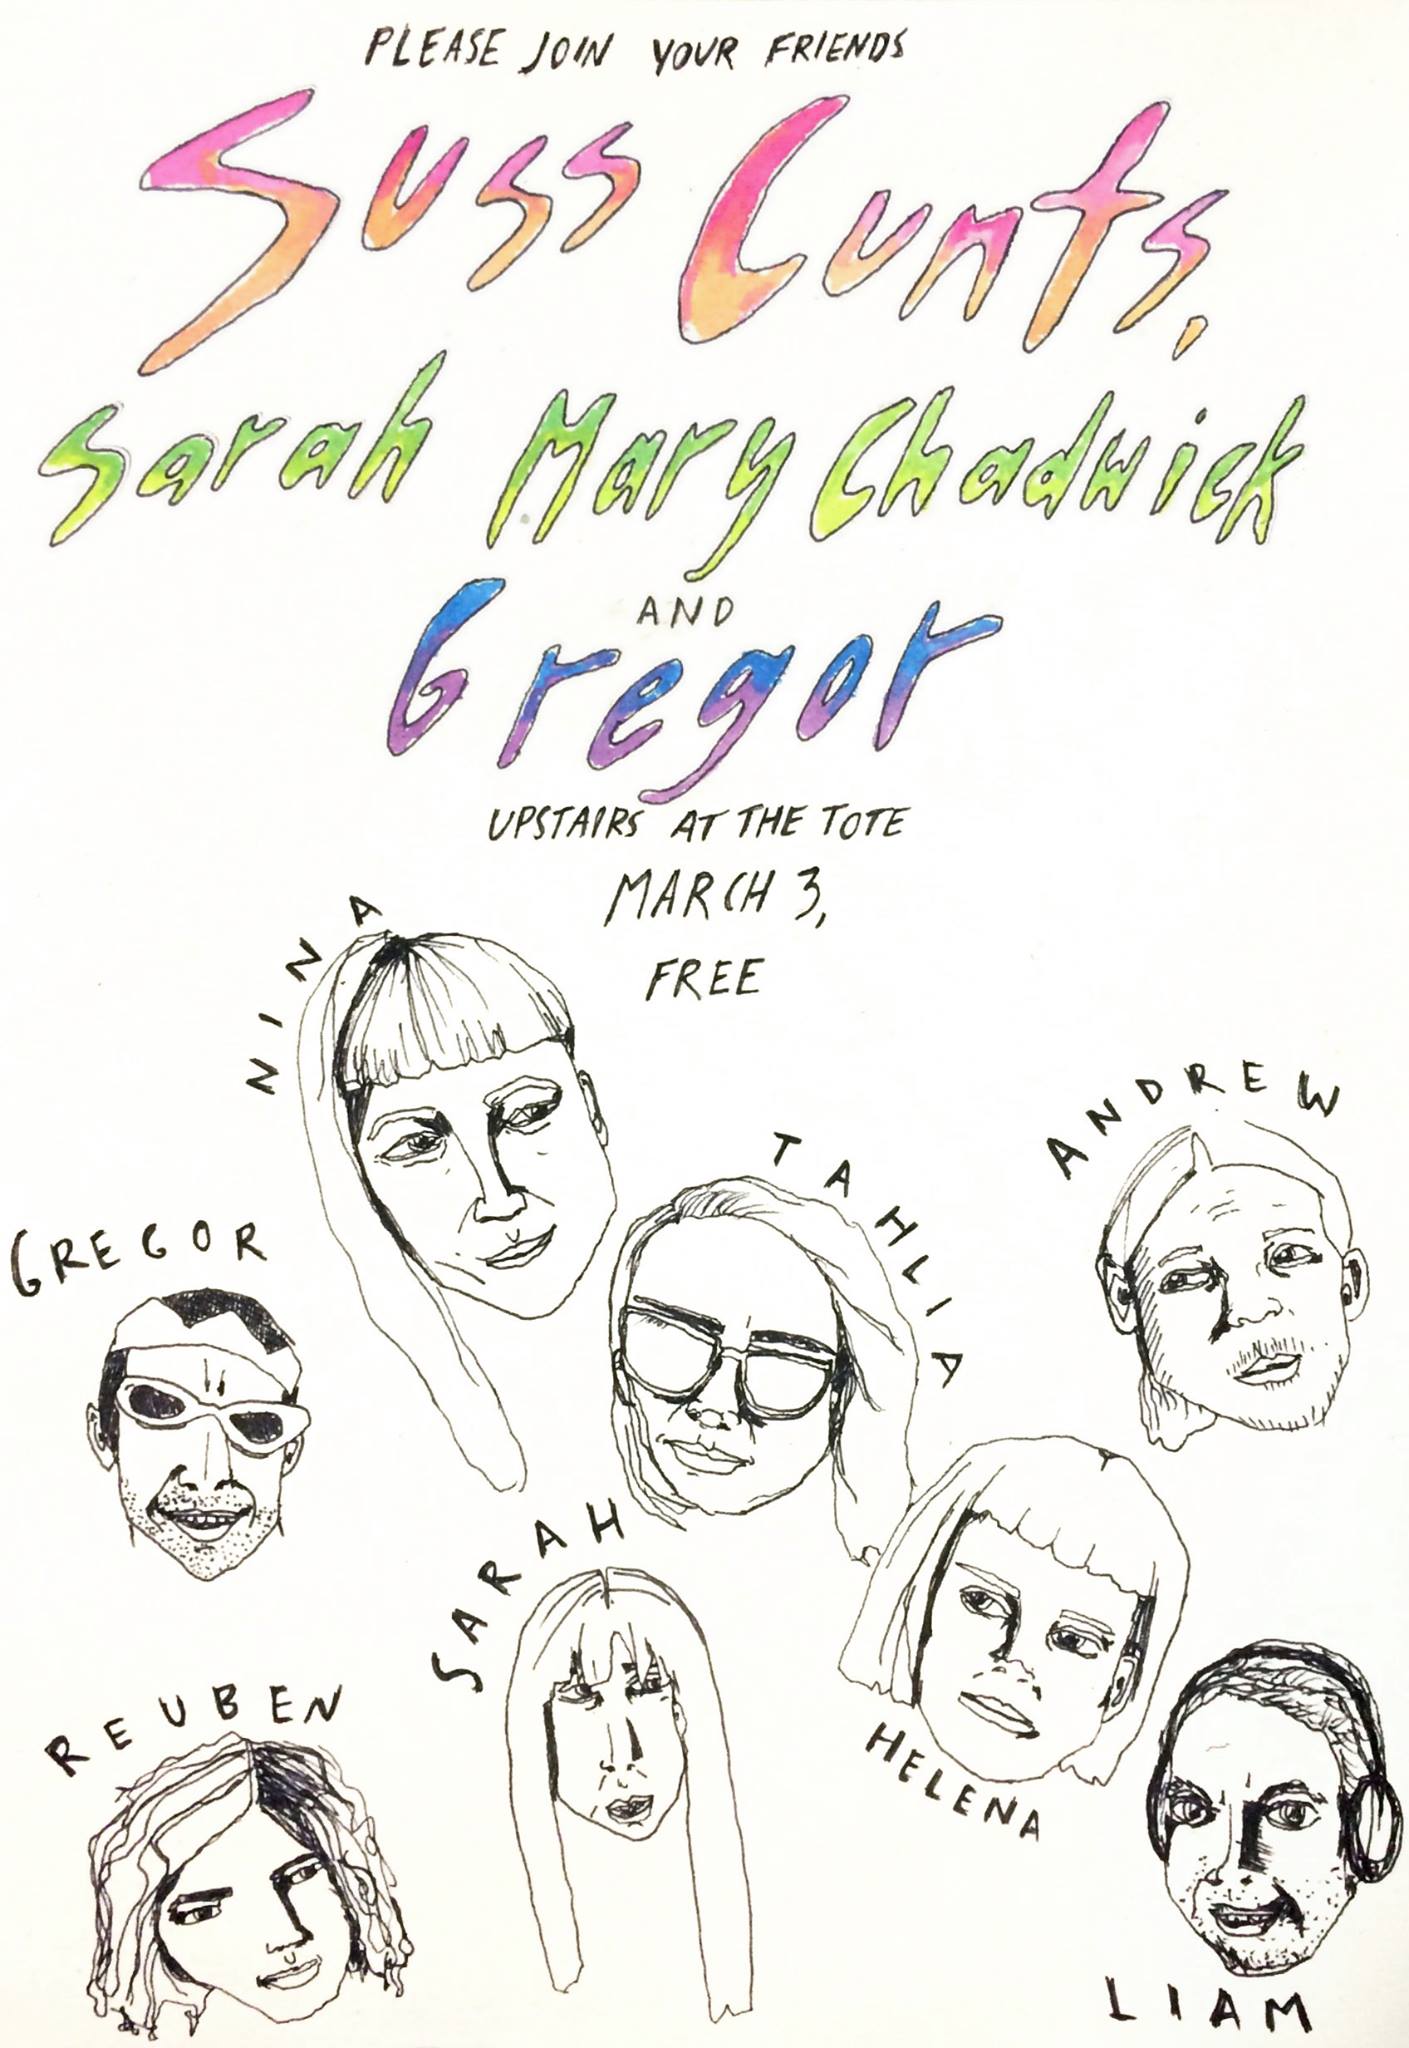 PLEASE JOIN YOUR FRIENDS
Suss Cunts,
Sarah Mary Chadwick
AND
Gregor
UPSTAIRS AT THE TOTE
MARCH 3,
FREE
NINA
ANDREW
TAHLIA
GREGOR
SARAH
REUBEN
HELENA
LIAM